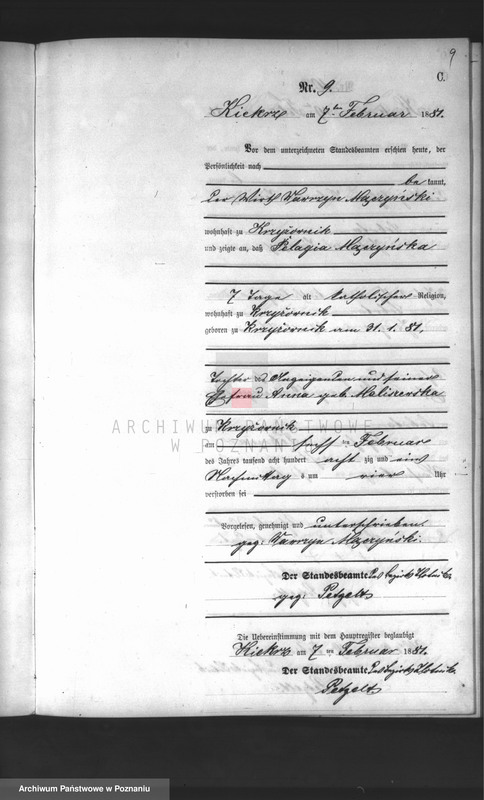 9
C.
Nr. 9.
Kiekrz am 7ten Februar 1881.
Vor dem unterzeichneten Standesbeamten erschien heute, der
Persönlichkeit nach
be kannt,
der Wirth Mączyński
wohnhaft zu Krzyżownik
und zeigte an, daß Pelagia Mączyńska
7 Tage alt katholischer Religion,
wohnhaft zu Krzyżownik
geboren zu Krzyżownik am 31. 1. 81.
Tochter des Anzeigenden und seiner
Ehefrau Anna geb. Maliszewska
ARCHIWUM PAŃSTWOWE
W POZNANIU
zu Krzyżownik
am sechsten Februar
des Jahres tausend acht hundert acht zig und ein
Nachmittag s um vier Uhr
verstorben sei
Vorgelesen, genehmigt und unterschrieben
gez. Mączyński.
Der Standesbeamte des Bezirks
gez. Petzelt
Die Uebereinstimmung mit dem Hauptregister beglaubigt
Kiekrz am 7 ten Februar 1881.
Der Standesbeamte des Bezirks
Petzelt
Archiwum Państwowe w Poznaniu